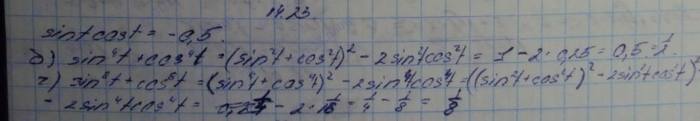 14.23.
sint cost = -0,5.
б) sin⁴t + cos⁴t = (sin²t + cos²t)² - 2sin²tcos²t = 1 - 2·0,25 = 0,5 = 1/2.
г) sin⁸t + cos⁸t = (sin⁴t + cos⁴t)² - 2sin⁴tcos⁴t = ((sin²t + cos²t)² - 2sin²tcos²t)²
- 2sin⁴tcos⁴t = 1/4 - 2·1/16 = 1/4 - 1/8 = 1/8